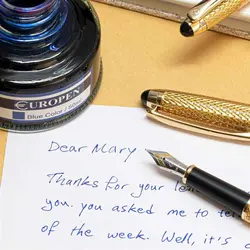 EUROPEN
Blue Color /
Dear Mary
Thanks for your
you. you asked me to
of the week. Well, it's